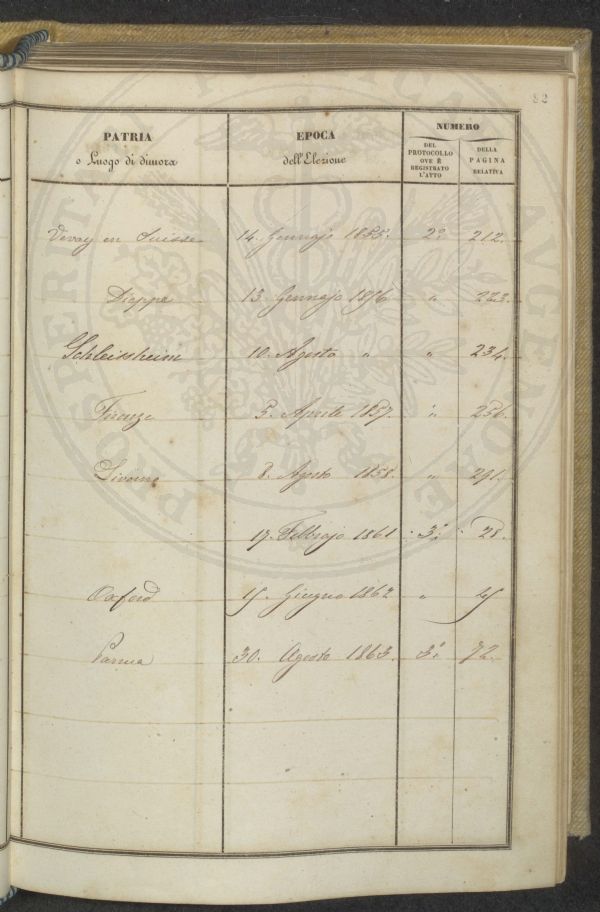 82
PATRIA
o Luogo di dimora
EPOCA
dell'Elezione
NUMERO
DEL
PROTOCOLLO
OVE È
REGISTRATO
L'ATTO
DELLA
PAGINA
RELATIVA
Vevay en Suisse 14. Gennajo 1855. 2º. 212.
Dieppe 13. Gennajo 1856 " 223.
Schleissheim 10. Agosto " " 234.
Firenze 5. Aprile 1857. " 256.
Livorno 8. Agosto 1858. " 291.
17. Febbrajo 1861 3º. 28.
Oxford 15. Giugno 1862 " 45
Parma 30. Agosto 1863. 3º. 72.
PROSPERITATI PUBLICAE AUGENDAE